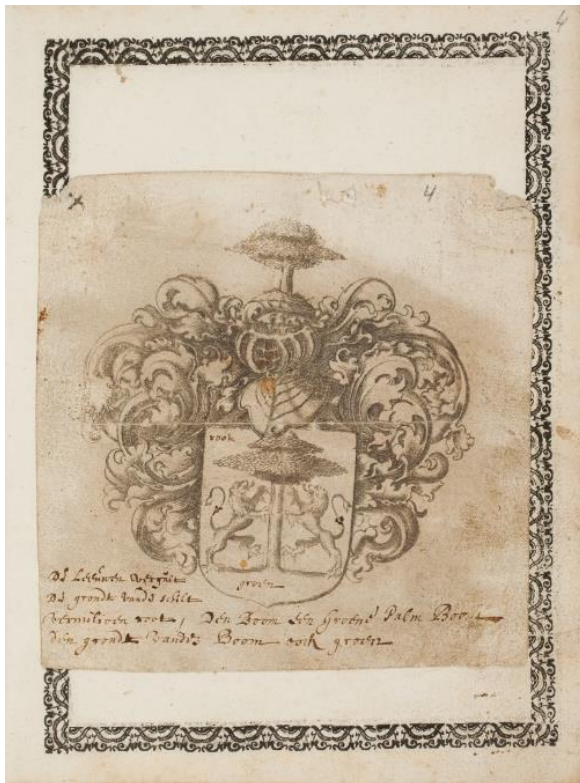 4
4
root
groen
De Leeuwen vergult
De grondt vande schilt
vermilioen root, Den Boom een Groene Palm Boom
Den grondt vande Boom oock groen